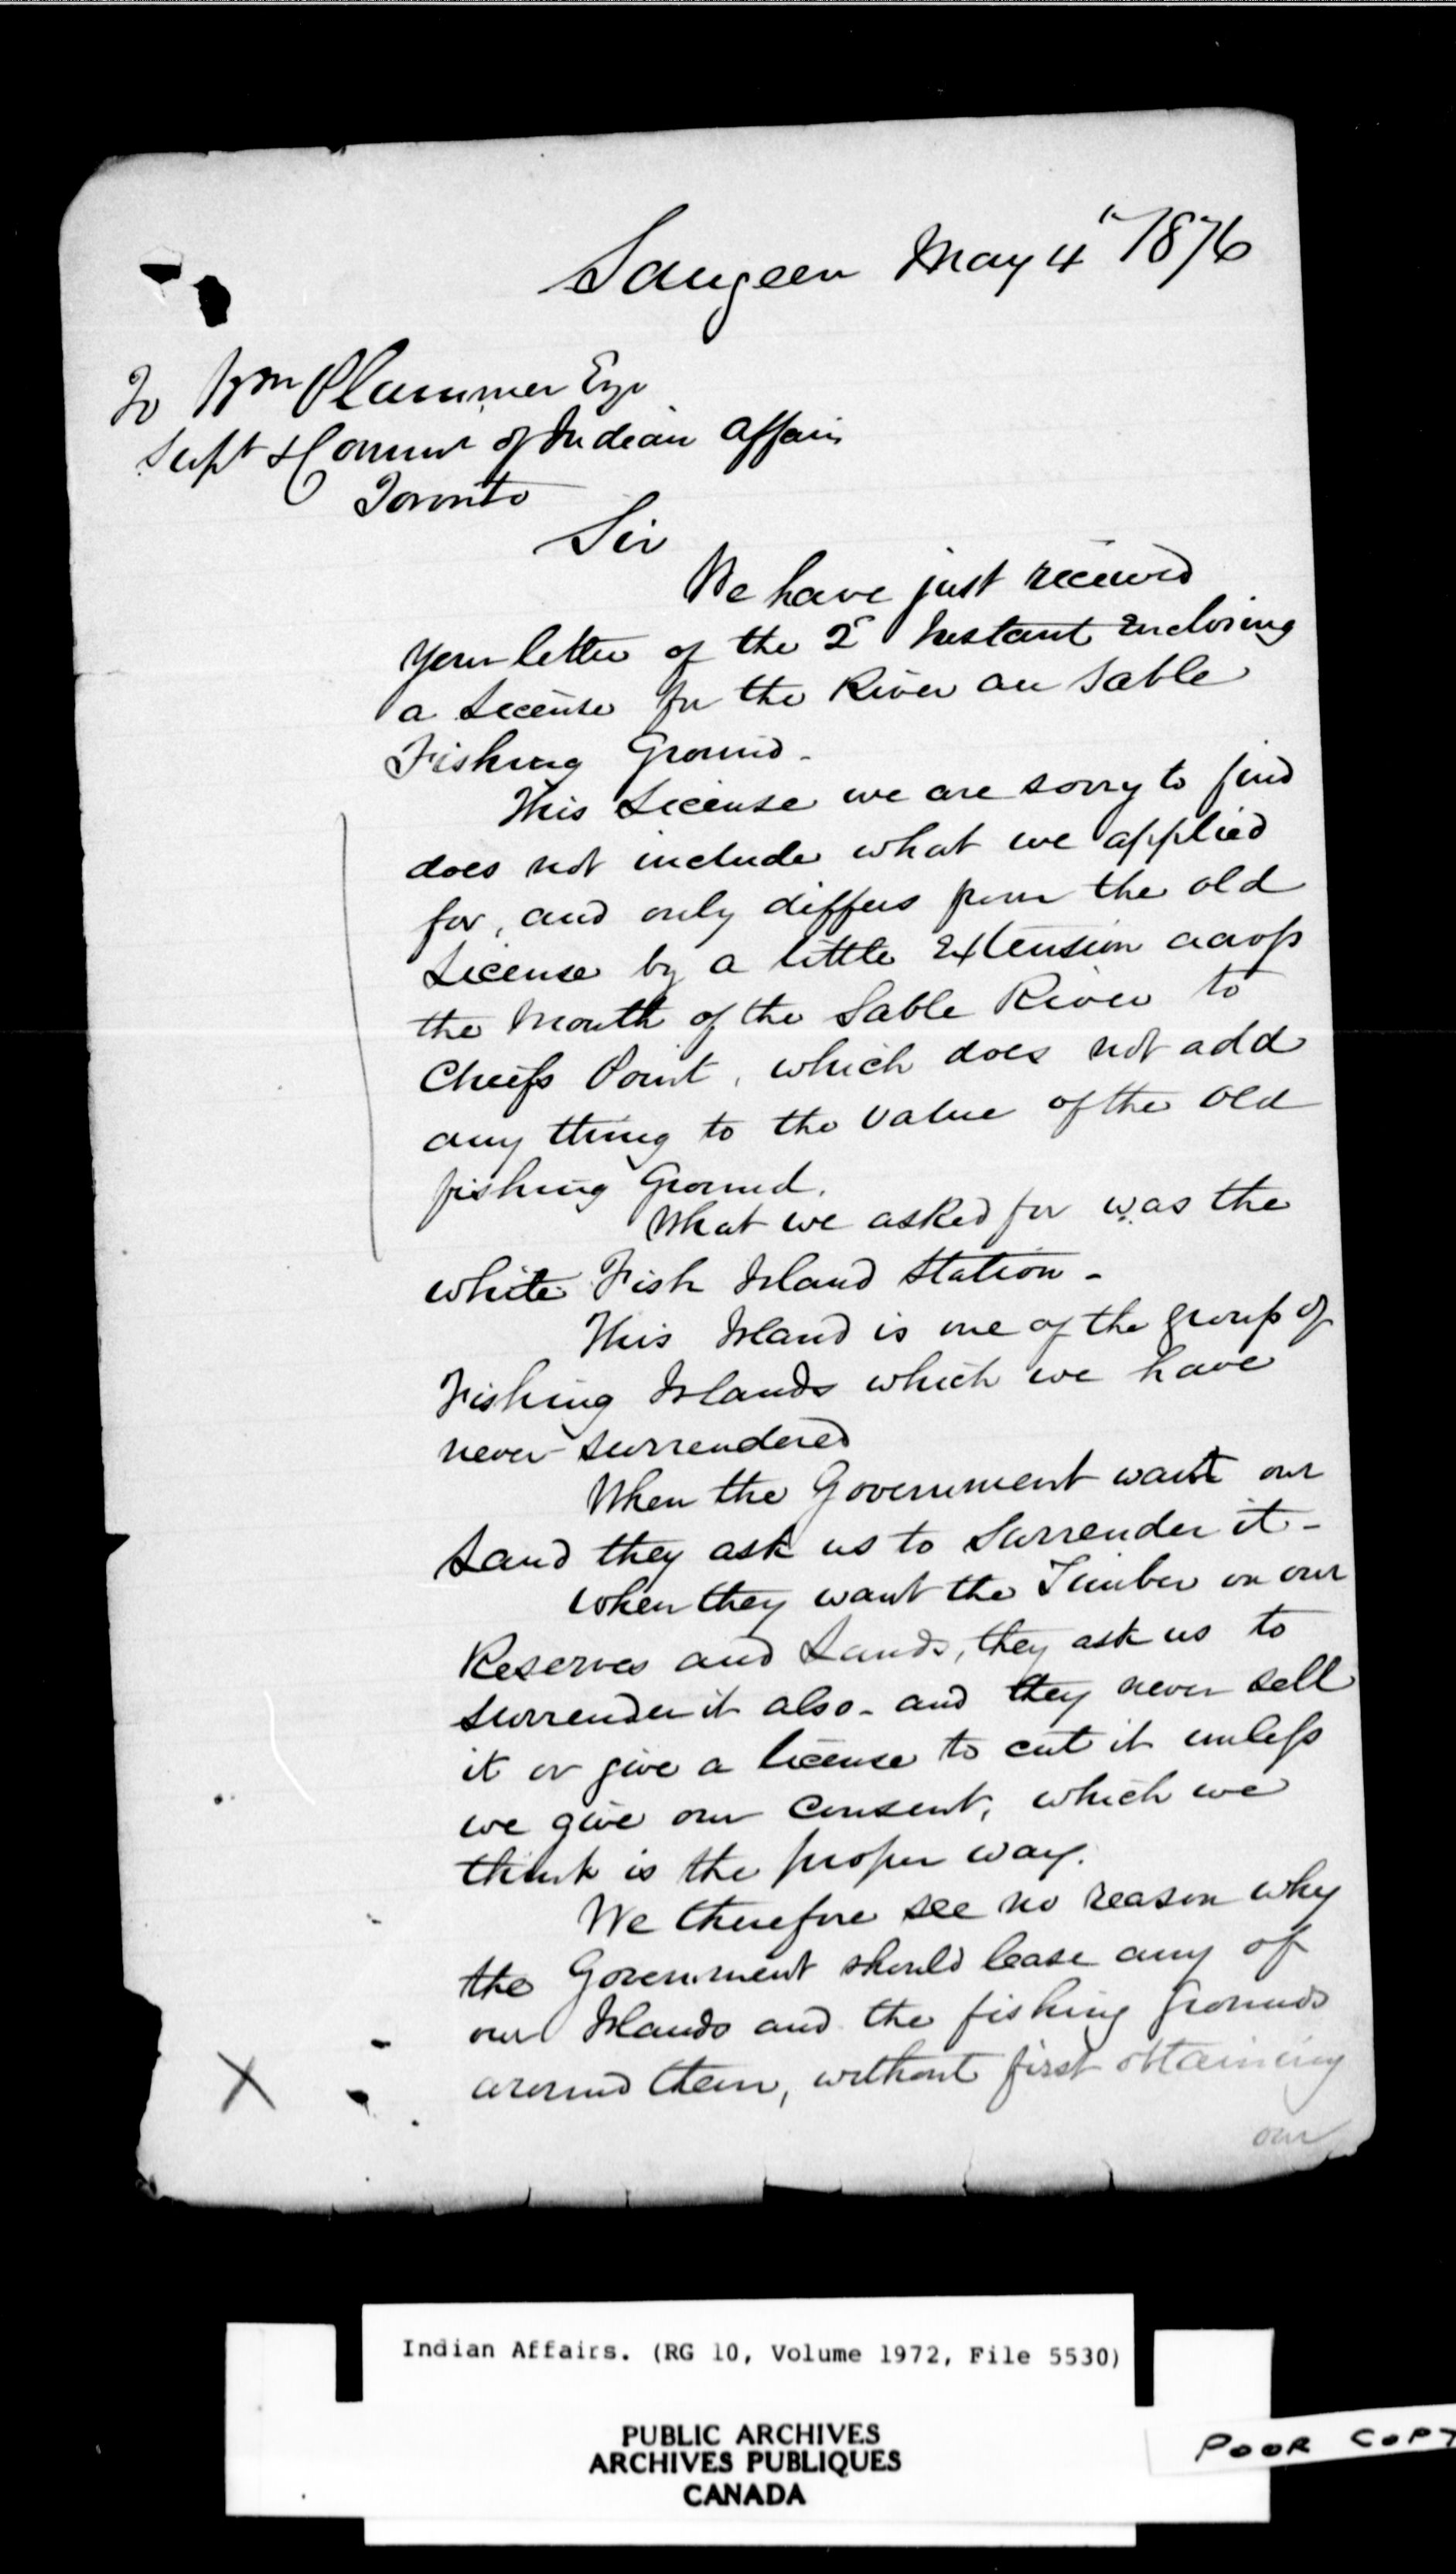 Saugeen May 4th 1876
To Wm Plummer Esqr
Supt & Commr of Indian Affairs
Toronto
Sir
We have just received
your letter of the 2d Instant Enclosing
a License for the River au Sable
Fishing Ground -
This License we are sorry to find
does not include what we applied
for, and only differs from the old
License by a little Extension across
the Mouth of the Sable River to
Chiefs Point, which does not add
any thing to the value of the old
fishing Ground.
What we asked for was the
white Fish Island Station -
This Island is one of the group of
Fishing Islands which we have
never surrendered
When the Government want our
Land they ask us to Surrender it -
when they want the Timber on our
Reserves and Lands, they ask us to
surrender it also - and they never sell
it or give a license to cut it unless
we give our Consent, which we
think is the proper way.
We therefore see no reason why
the Government should lease any of
our Islands and the fishing grounds
around them, without first obtaining
our
X
Indian Affairs. (RG 10, Volume 1972, File 5530)
PUBLIC ARCHIVES
ARCHIVES PUBLIQUES
CANADA
POOR COPY